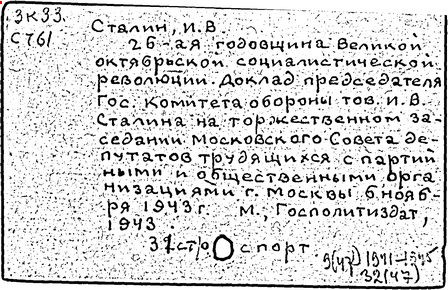 3К33
С761
Сталин, И.В.
26-ая годовщина Великой
октябрьской социалистической
революции. Доклад председателя
Гос. Комитета обороны тов. И.В.
Сталина на торжественном за-
седании Московского Совета де-
путатов трудящихся с партий
ными и общественными орга
низациями г. Москвы 6 нояб
ря 1943 г. М., Госполитиздат,
1943.
31 стр. спорт
9(47) 1941-1945
32(47)